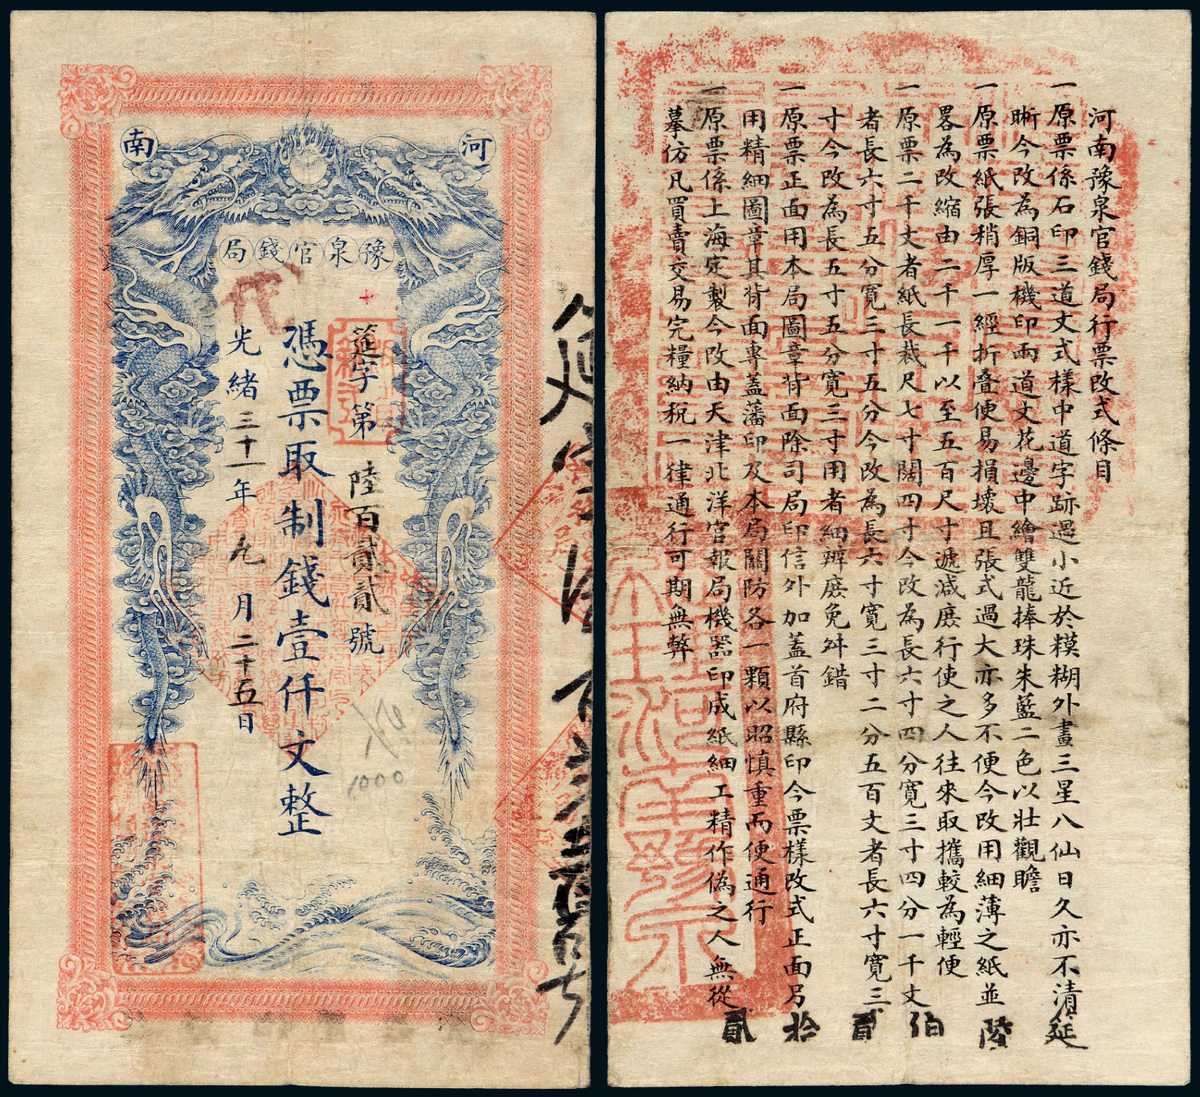 河南
豫泉官錢局
筵字第
陸百貳貳號
憑票取制錢壹仟文整
光緒三十一年九月二十五日
1000
河南豫泉官錢局行票改式條目
一原票係石印三道文式樣中道字跡過小近於糢糊外畫三星八仙日久亦不清
晰今改為銅版機印兩道文花邊中繪雙龍捧珠朱藍二色以壯觀瞻
一原票紙張稍厚一經折叠便易損壞且張式過大亦多不便今改用細薄之紙並
畧為改縮由二千一千以至五百尺寸遞減庶行使之人往來取攜較為輕便
一原票二千文者紙長裁尺七寸闊四寸今改為長六寸四分寬三寸四分一千文
者長六寸五分寬三寸五分今改為長六寸寬三寸二分五百文者長六寸寬三
寸今改為長五寸五分寬三寸用者細辨庶免舛錯
一原票正面用本局圖章背面除司局印信外加蓋首府縣印今票樣改式正面另
用精細圖章其背面專蓋藩印及本局關防各一顆以昭慎重而便通行
一原票係上海定製今改由天津北洋官報局機器印成紙細工精作偽之人無從
摹仿凡買賣交易完糧納稅一律通行可期無弊
延陸伯貳拾貳